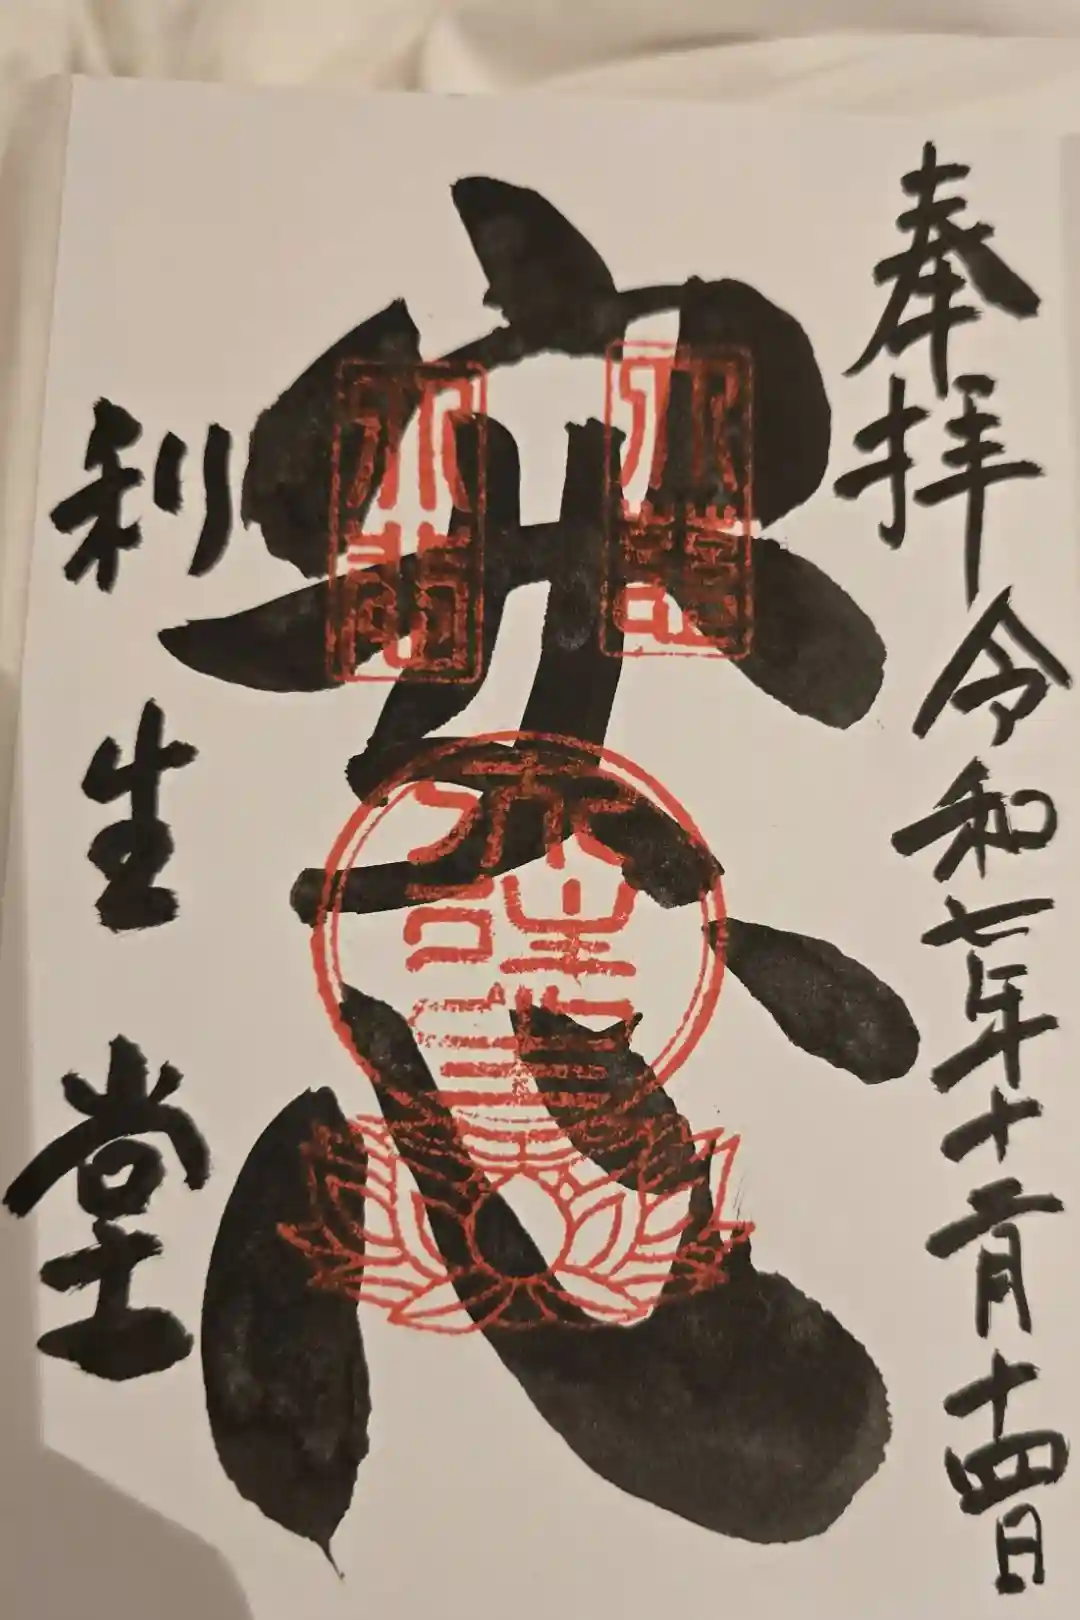 奉拝 令和七年十二月十四日
安心
利生堂